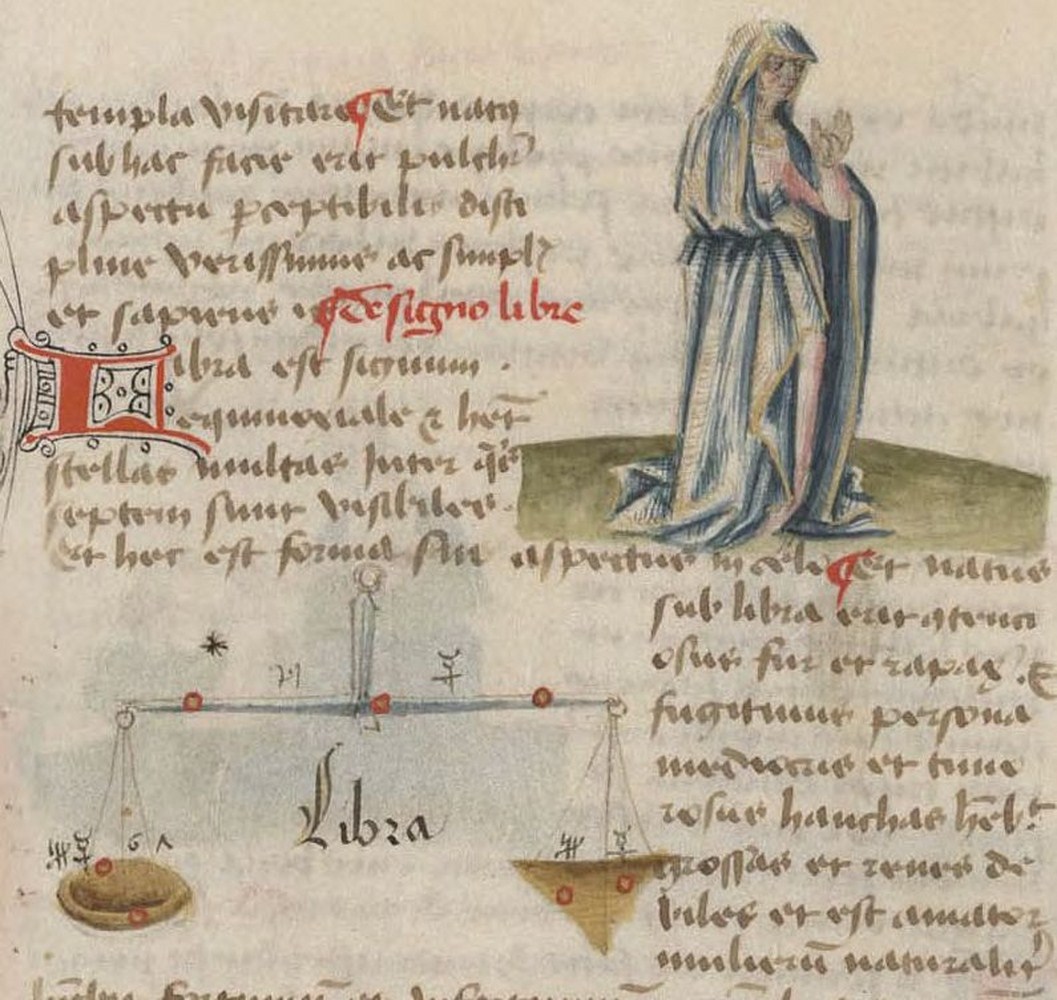 templa visitare ¶ Et natꝯ
sub hac facie erit pulchr̄
aspectu ꝑceptibilis disci
pline verissimus ac simpl
et sapiens
¶ De signo libre
Libra est signum
equinoxiale ⁊ het̄
stellas multas Inter q̄s
septem sunt visibiles.
Et hec est forma sui aspectus in celo ¶ Et natus
sub libra erit ꝯtenci
osus fur et rapax. E
fugitiuus persona
mediocris et timo
rosus hanchas hēb
grossas et renes de
biles et est amator
mulierū naturalit̄
Libra